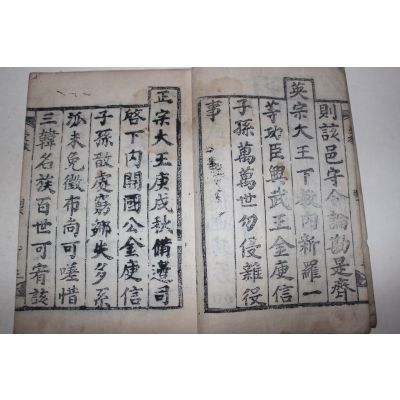 則該邑守令論勘是齊
英宗大王下敎內新羅一
等功臣興武王金庾信
子孫萬萬世勿侵雜役
事
正宗大王庚戌秋備邊司
啓下內開國公金庾信
子孫散處窮鄕失多系
沠未免徵布向可嗟惜
三韓名族百世可宥該